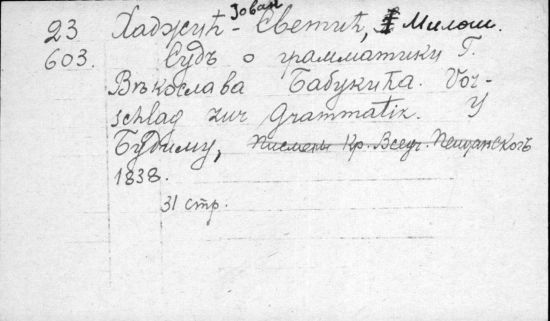 23 Хаджић - Јован Светић, Милош.
603. Судъ о грамматики Г.
Вѣкослава Бабукића. Vor-
schlag zur Grammatik. У
Будиму, писмены Кр. Всеуч. Пещанскогъ
1838.
31 стр.